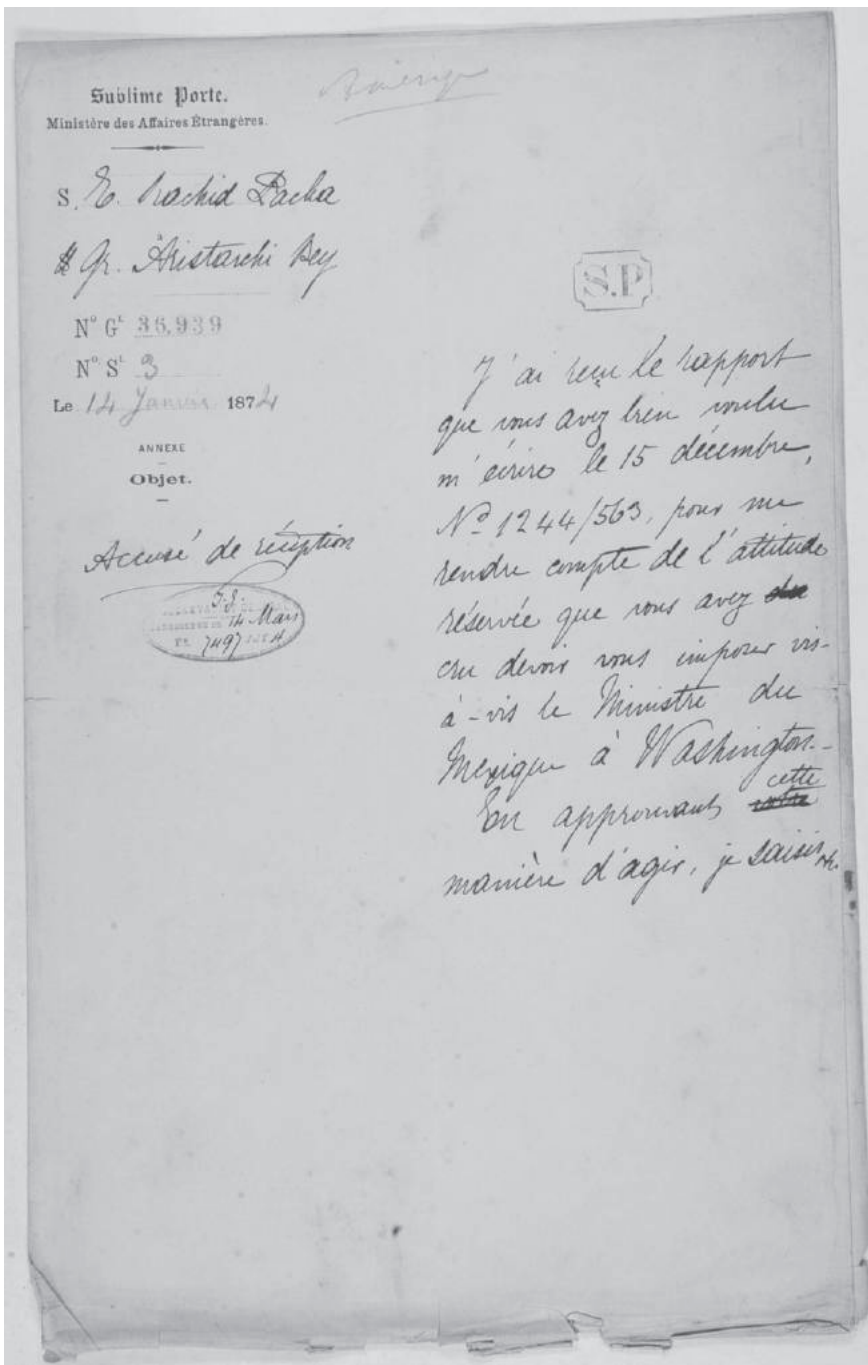 Sublime Porte.
Ministère des Affaires Étrangères.
S. E. Rachid Pacha
à Gr. Aristarchi Bey
Nº Gᴸ 36,939
Nº Sᴸ 3
Le 14 Janvier 1874
ANNEXE
Objet.
Accusé de réception
14 Mars
7497
S.P
J'ai reçu le rapport
que vous avez bien voulu
m'écrire le 15 décembre,
Nº 1244/563, pour me
rendre compte de l'attitude
réservée que vous avez
cru devoir vous imposer vis-
à-vis le Ministre du
Mexique à Washington.-
En approuvant cette
manière d'agir, je saisis etc.